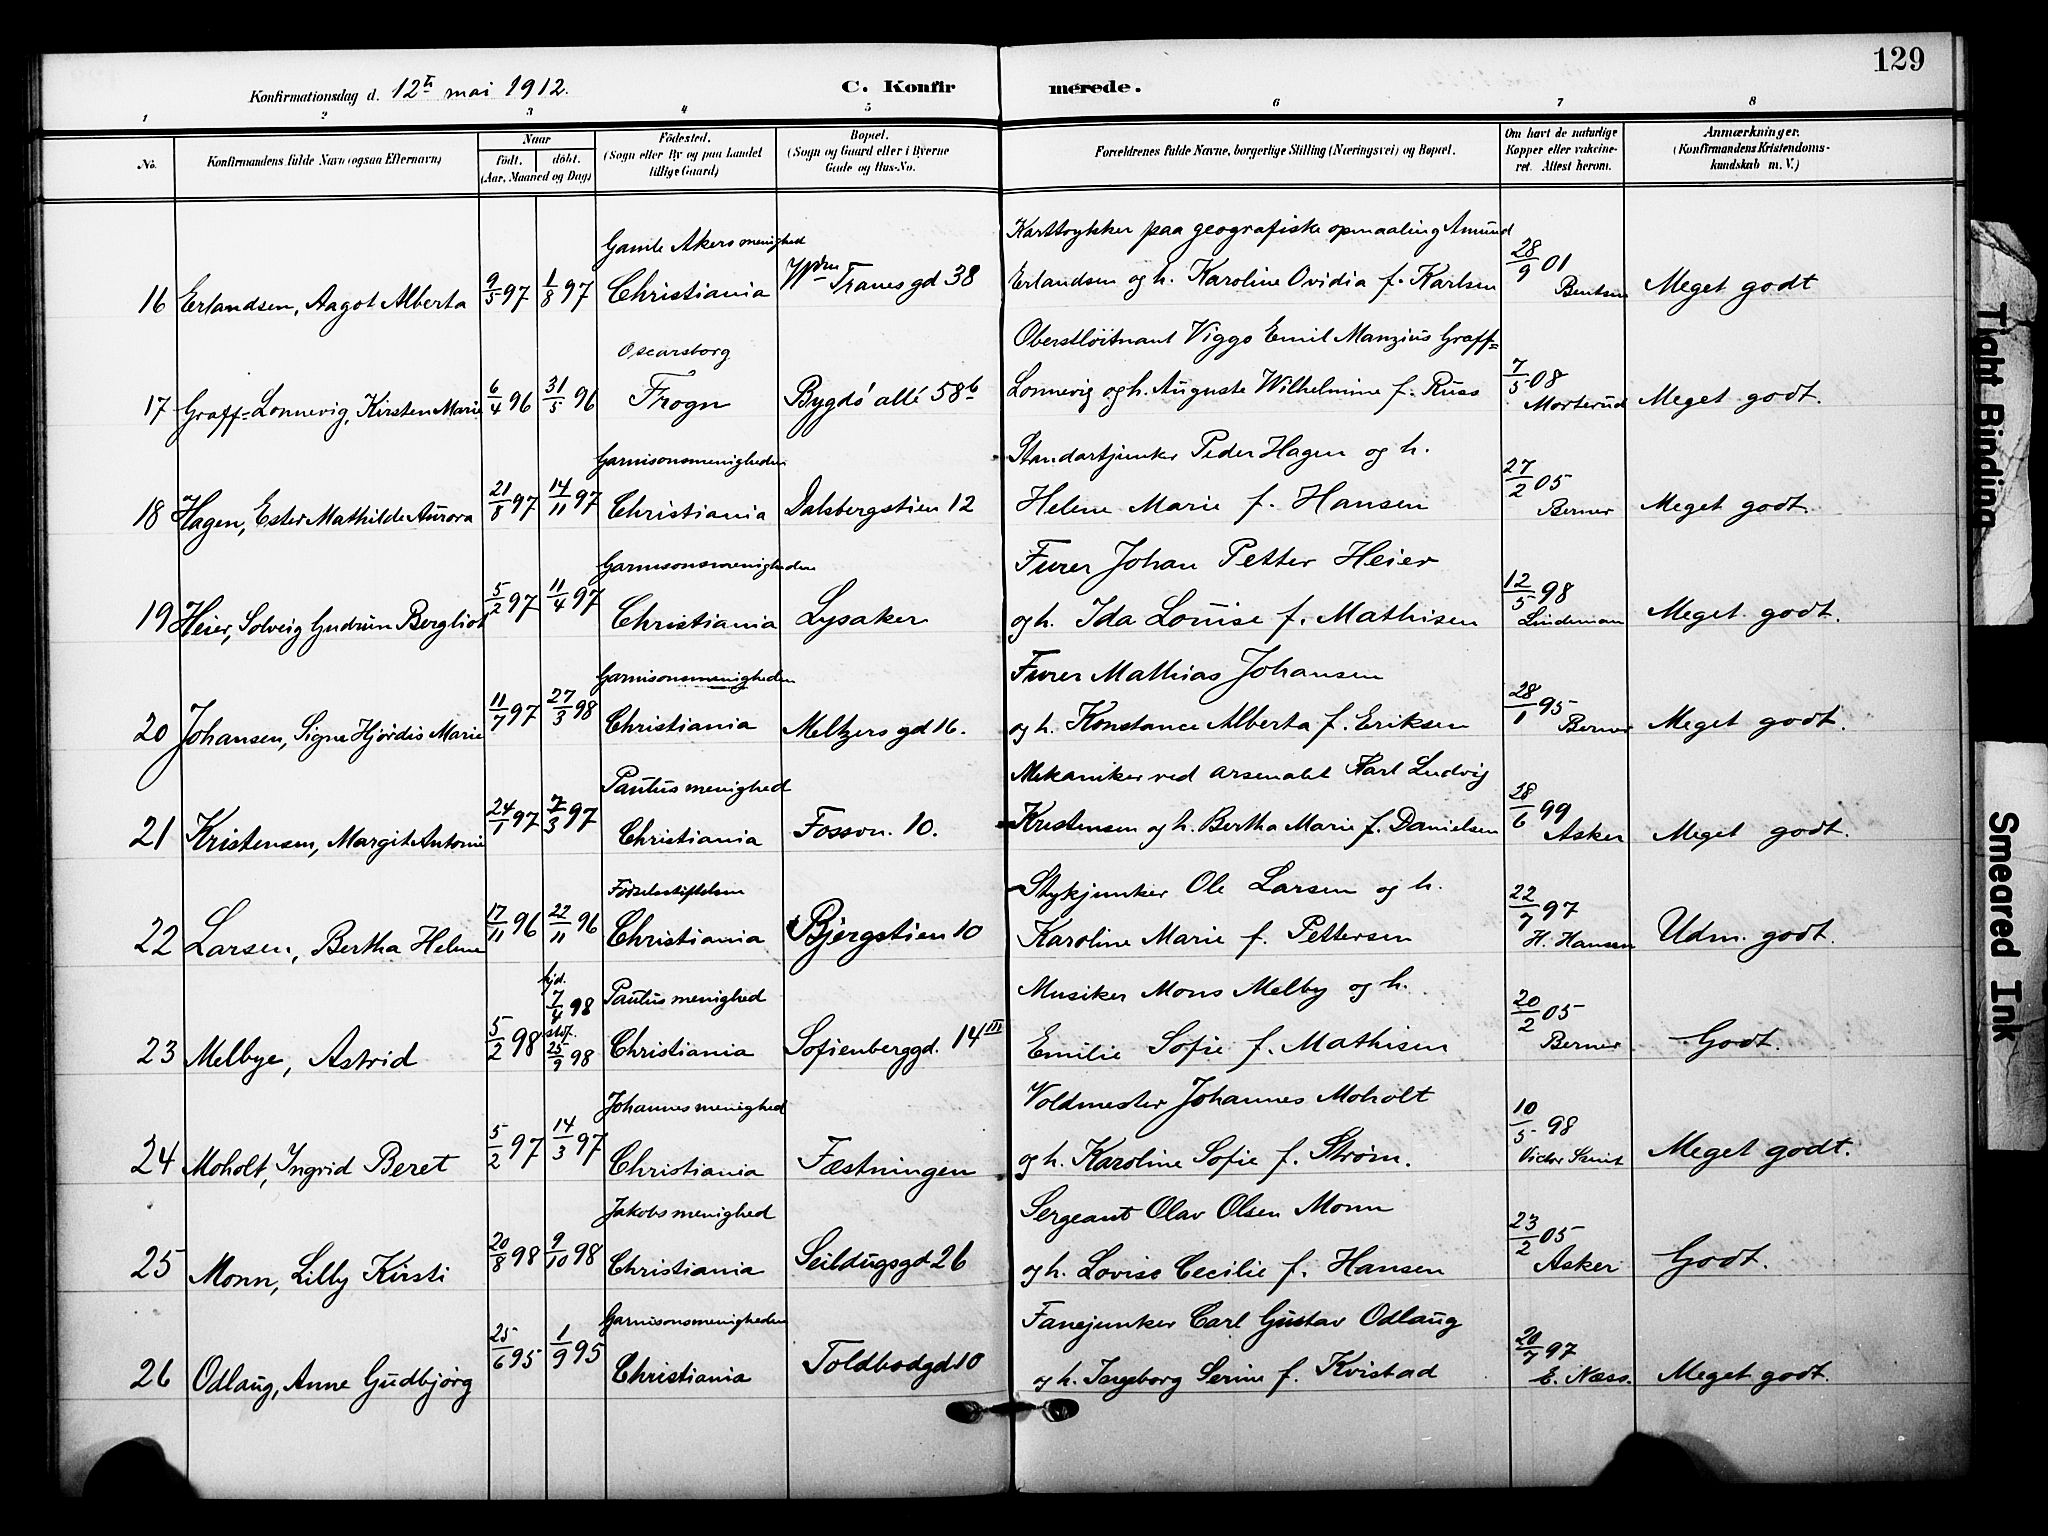 129
Konfirmationsdag d. 12te mai 1912.
C. Konfirmerede.
1 2 3 4 5 6 7 8
No.
Konfirmandens fulde Navn (ogsaa Efternavn)
Naar
födt. döbt.
(Aar, Maaned og Dag)
Födested.
(Sogn eller By og paa Landet
tillige Gaard)
Bopæl.
(Sogn og Gaard eller i Byerne
Gade og Hus-No.
Forældrenes fulde Navne, borgerlige Stilling (Næringsvei) og Bopæl.
Om havt de naturlige
Kopper eller vakcine-
ret. Attest herom.
Anmærkninger.
(Konfirmandens Kristendoms-
kundskab m. V.)
Gamle Akers menighed Karttrykker paa geografiske opmaaling Amund
16 Erlandsen, Aagot Alberta 9/5 97 1/8 97 Christiania Tranes gd 38 Erlandsen og h. Karoline Ovidia f. Karlsen 28/9 01 Bentsen Meget godt
Oscarsborg Oberstløitnant Viggo Emil Manzius Graff=
17 Graff=Lonnevig, Kirsten Marie 6/4 96 31/5 96 Frogn Bygdö allé 58b Lonnevig og h. Auguste Wilhelmine f. Russ 7/5 08 Morterud Meget godt.
Garnisonsmenigheden Standartjunker Peder Hagen og h.
18 Hagen, Ester Mathilde Aurora 21/8 97 14/11 97 Christiania Dalsbergstien 12 Helene Marie f. Hansen 27/2 05 Berner Meget godt.
Garnisonsmenigheden Furer Johan Petter Heier
19 Heier, Solveig Gudrun Bergliot 5/2 97 11/4 97 Christiania Lysaker og h. Ida Louise f. Mathisen 12/5 98 Lindeman Meget godt.
Garnisonsmenigheden Furer Mathias Johansen
20 Johansen, Signe Hjördis Marie 11/7 97 27/3 98 Christiania Meltzers gd 16. og h. Konstance Alberta f. Eriksen 28/1 95 Berner Meget godt.
Paulus menighed Mekaniker ved arsenalet Karl Ludvig
21 Kristensen, Margit Antonie 24/1 97 7/3 97 Christiania Fossv. 10. Kristensen og h. Bertha Marie f. Danielsen 28/6 99 Asker Meget godt.
Fødselsstiftelsen Stykjunker Ole Larsen og h.
22 Larsen, Bertha Helene 17/11 96 22/11 96 Christiania Bjergstien 10 Karoline Marie f. Pettersen 22/7 97 H. Hansen Udm. godt.
hjd. 7/4 98 Paulus menighed Musiker Mons Melby og h.
23 Melbye, Astrid 5/2 98 stdf. 25/9 98 Christiania Sofienberggd. 14 III Emilie Sofie f. Mathisen 20/2 05 Berner Godt.
Johannes menighed Voldmester Johannes Moholt
24 Moholt, Ingrid Beret 5/2 97 14/3 97 Christiania Fæstningen og h. Karoline Sofie f. Strøm. 10/5 98 Meget godt.
Jakobs menighed Sergeant Olav Olsen Monn
25 Monn, Lilly Kirsti 20/8 98 9/10 98 Christiania Seildugsgd 26 og h. Lovise Cecilie f. Hansen 23/2 05 Asker Godt.
Garnisonsmenigheden Fanejunker Carl Gustav Odlaug
26 Odlaug, Anne Gudbjörg 25/6 95 1/9 95 Christiania Toldbodgd 10 og h. Ingeborg Serine f. Kvistad 20/7 97 E. Næss. Meget godt.
Tight Binding
Smeared Ink